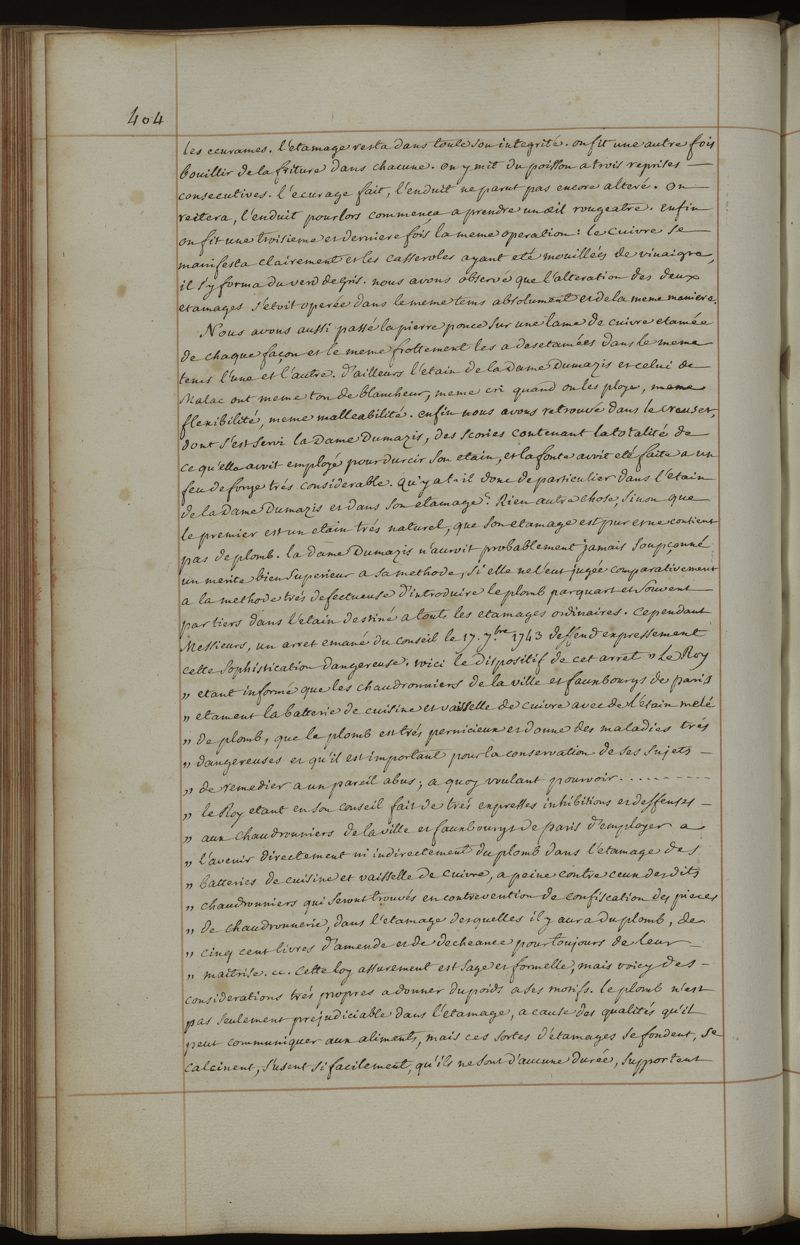 404
les ecurames. l'etamage resta dans toute son integrité. on fit une autre fois
bouillir de la friture dans chacune. on y mit du poisson a trois reprises —
consecutives. l'ecurage fait, l'enduit ne parut pas encore alteré. on —
reitera, l'enduit pour lors commença a prendre un œil rougeatre. enfin
on fit une troisieme et derniere fois la meme operation: le cuivre se —
manifesta clairement et les casseroles ayant eté mouillées de vinaigre,
il s'y forma du verd de gris. nous avons observé que l'alteration des deux
etamages s'etoit operée dans le meme tems absolument et de la meme maniere.
Nous avons aussi passé la pierre ponce sur une lame de cuivre etamée
de chaque façon et le meme frottement les a desetamées dans le meme
tems l'une et l'autre. d'ailleurs l'etain de la Dame Dumazis et celui de
Malac ont meme ton de blancheur, meme cri quand on les ploye, meme
flexibilité, meme malleabilité. enfin nous avons retrouvé dans le creuset,
dont s'est servi la Dame Dumazis, des scories contenant la totalité de
ce qu'elle avoit employé pour durcir son etain, et la fonte avoit eté faite a un
feu de forge trés considerable. qu'y a t-il donc de particulier dans l'etain
de la Dame Dumazis et dans son etamage? Rien autre chose, sinon que
le premier est un etain trés naturel, que son etamage est pur et ne contient
pas de plomb. la dame Dumazis n'auroit probablement jamais soupçonné
un merite bien superieur a sa methode, si elle ne l'eut jugée comparativement
a la methode trés defectueuse d'introduire le plomb par quart et souvent —
par tiers dans l'etain destiné a touts les etamages ordinaires. cependant
Messieurs, un arret emané du conseil le 17. 7bre 1743 deffend expressement
cette sophistication dangereuse. voici le dispositif de cet arret „ Le Roy
„ etant informé que les chaudronniers de la ville et fauxbourgs de paris
„ etament la batterie de cuisine et vaisselle de cuivre avec de l'etain melé
„ de plomb, que le plomb est trés pernicieux et donne des maladies trés
„ dangereuses et qu'il est important pour la conservation de ses sujets —
„ de remedier a un pareil abus; a quoy voulant pourvoir . . . . . . - - - -
„ le Roy etant en son conseil fait de trés expresses inhibitions et deffenses —
„ aux chaudronniers de la ville et fauxbourgs de paris d'employer a
„ l'avenir directement ni indirectement du plomb dans l'etamage des
„ batteries de cuisine et vaisselle de cuivre, a peine contre ceux desdits
„ chaudronniers qui seront trouvés en contrevention de confiscation des pieces
„ de chaudronnerie, dans l'etamage desquelles il y aura du plomb, de
„ cinq cent livres d'amende et de decheance pour toujours de leur —
„ maitrise. &c. cette loy assurement est sage et formelle, mais voicy des —
considerations trés propres a donner du poids a ses motifs. le plomb n'est
pas seulement prejudiciable dans l'etamage, a cause des qualités qu'il
peut communiquer aux aliments, mais ces sortes d'etamages se fondent, se
calcinent, s'usent si facilement, qu'ils ne sont d'aucune durée, supportent